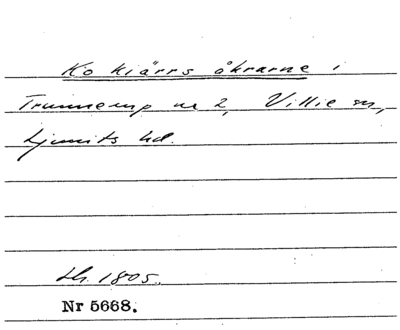 Ko kiärrs åkrarne i
Trunnerup nr 2, Villie sn,
Ljunits hd.
Lh. 1805.
Nr 5668.